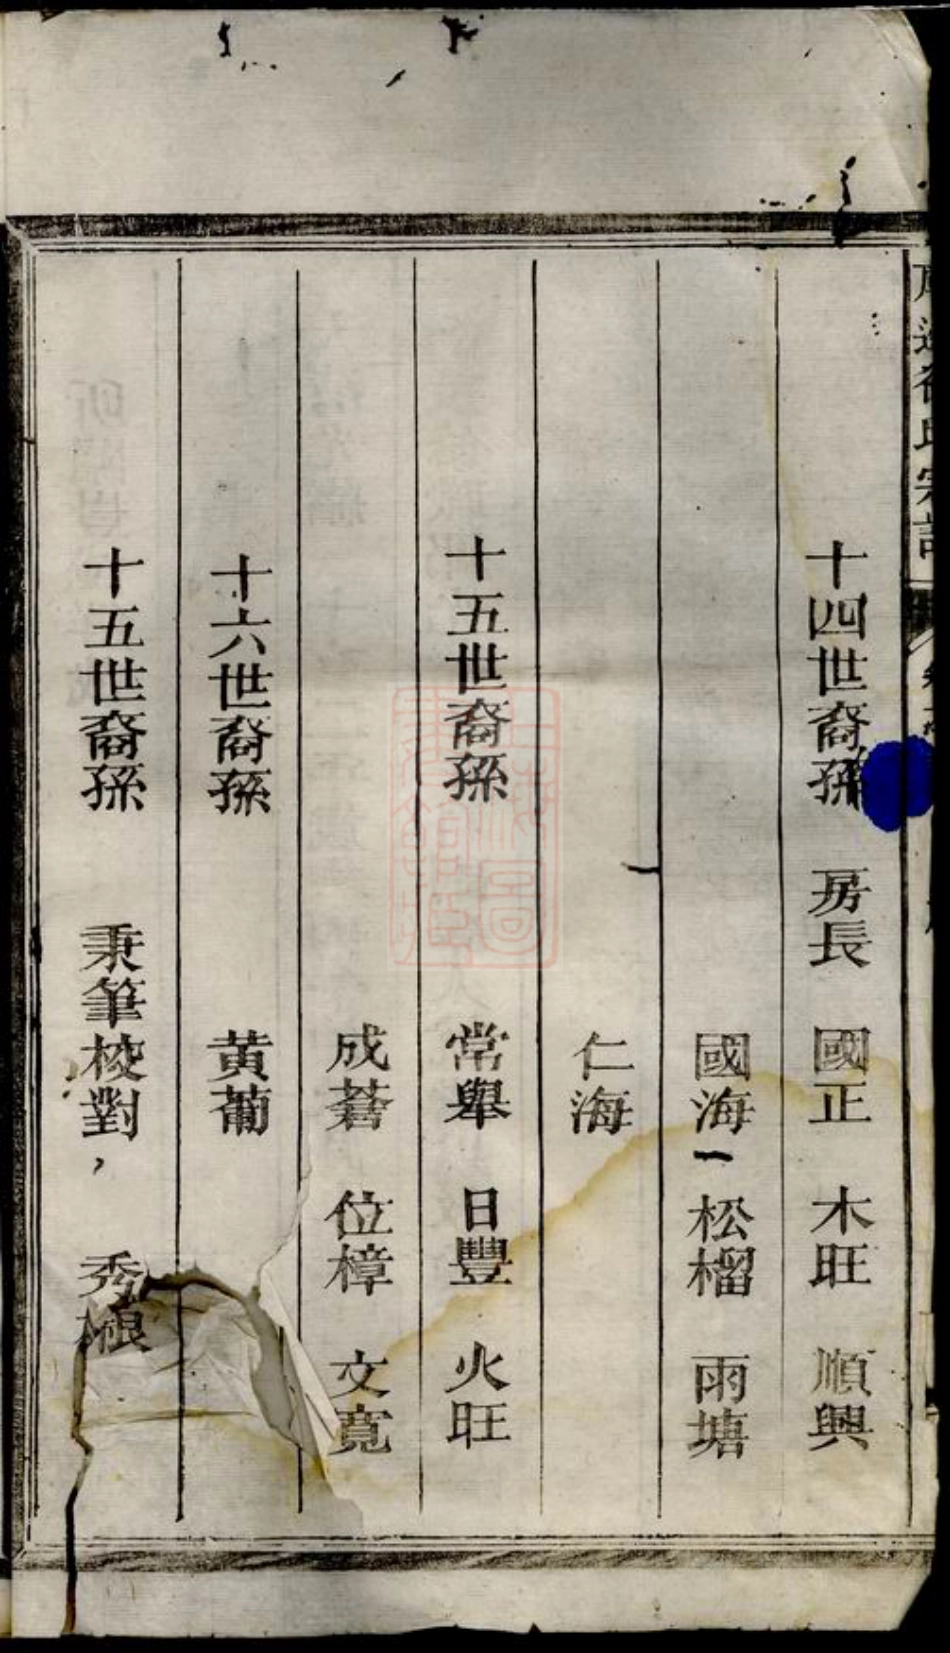 十四世裔孫 房長 國正 木旺 順興
國海 松榴 雨塘
仁海
十五世裔孫 常舉 日豐 火旺
成蒼 位樟 文寬
十六世裔孫 黄葡
十五世裔孫 秉筆校對, 秀根